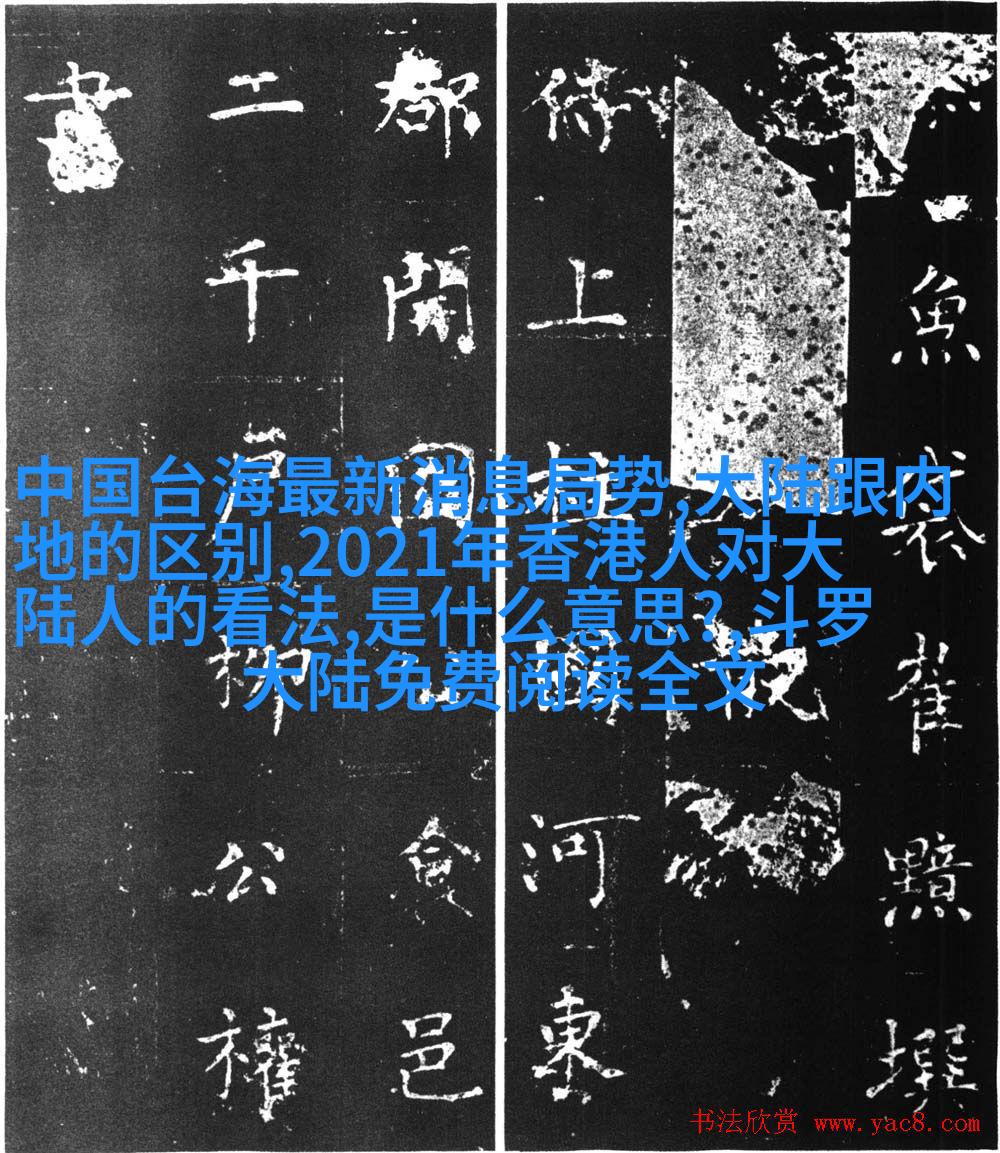 魚袋崔黯撰
侍上柱國河東
郡開國公食邑
二千戶柳公權
書
中国台海最新消息局势,大陆跟内
地的区别,2021年香港人对大
陆人的看法,是什么意思?,斗罗
大陆免费阅读全文
书法欣赏 www.yac8.com